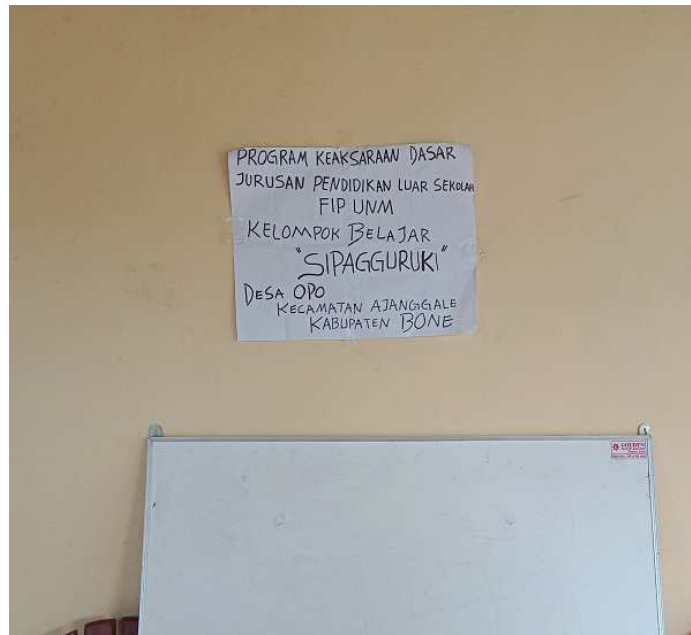 PROGRAM KEAKSARAAN DASAR
JURUSAN PENDIDIKAN LUAR SEKOLAH
FIP UNM
KELOMPOK BELAJAR
"SIPAGGURUKI"
DESA OPO
KECAMATAN AJANGGALE
KABUPATEN BONE